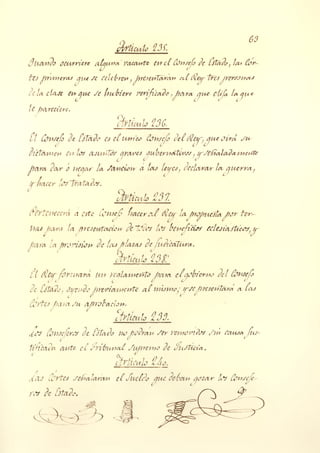 69
Artículo 235.
Quando ocurriere alguna vacante en el Consejo de Estado, las Cór-
tes primeras que se celebren, presentarán al Rey tres personas
de la clase en que se hubiere verificado, para que elija la que
le pareciere.
Artículo 236.
El Consejo de Estado es el único Consejo del Rey, que oirá su
dictamen en los asuntos graves gubernativos, y señaladamente
para dar ó negar la sancion á las leyes, declarar la guerra,
y hacer los tratados.
Artículo 237.
Pertenecerá á este Consejo hacer al Rey la propuesta por ter-
nas para la presentacion de todos los beneficios eclesiásticos, y
para la provision de las plazas de judicatura.
Artículo 238.
El Rey formará un reglamento para el gobierno del Consejo
de Estado, oyendo previamente al mismo; y se presentará á las
Córtes para su aprobacion.
Artículo 239.
Los Consejeros de Estado no podrán ser removidos sin causa jus-
tificada ante el Tribunal Supremo de Justicia.
Artículo 240.
Las Córtes señalarán el sueldo que deban gozar los Conseje-
ros de Estado.